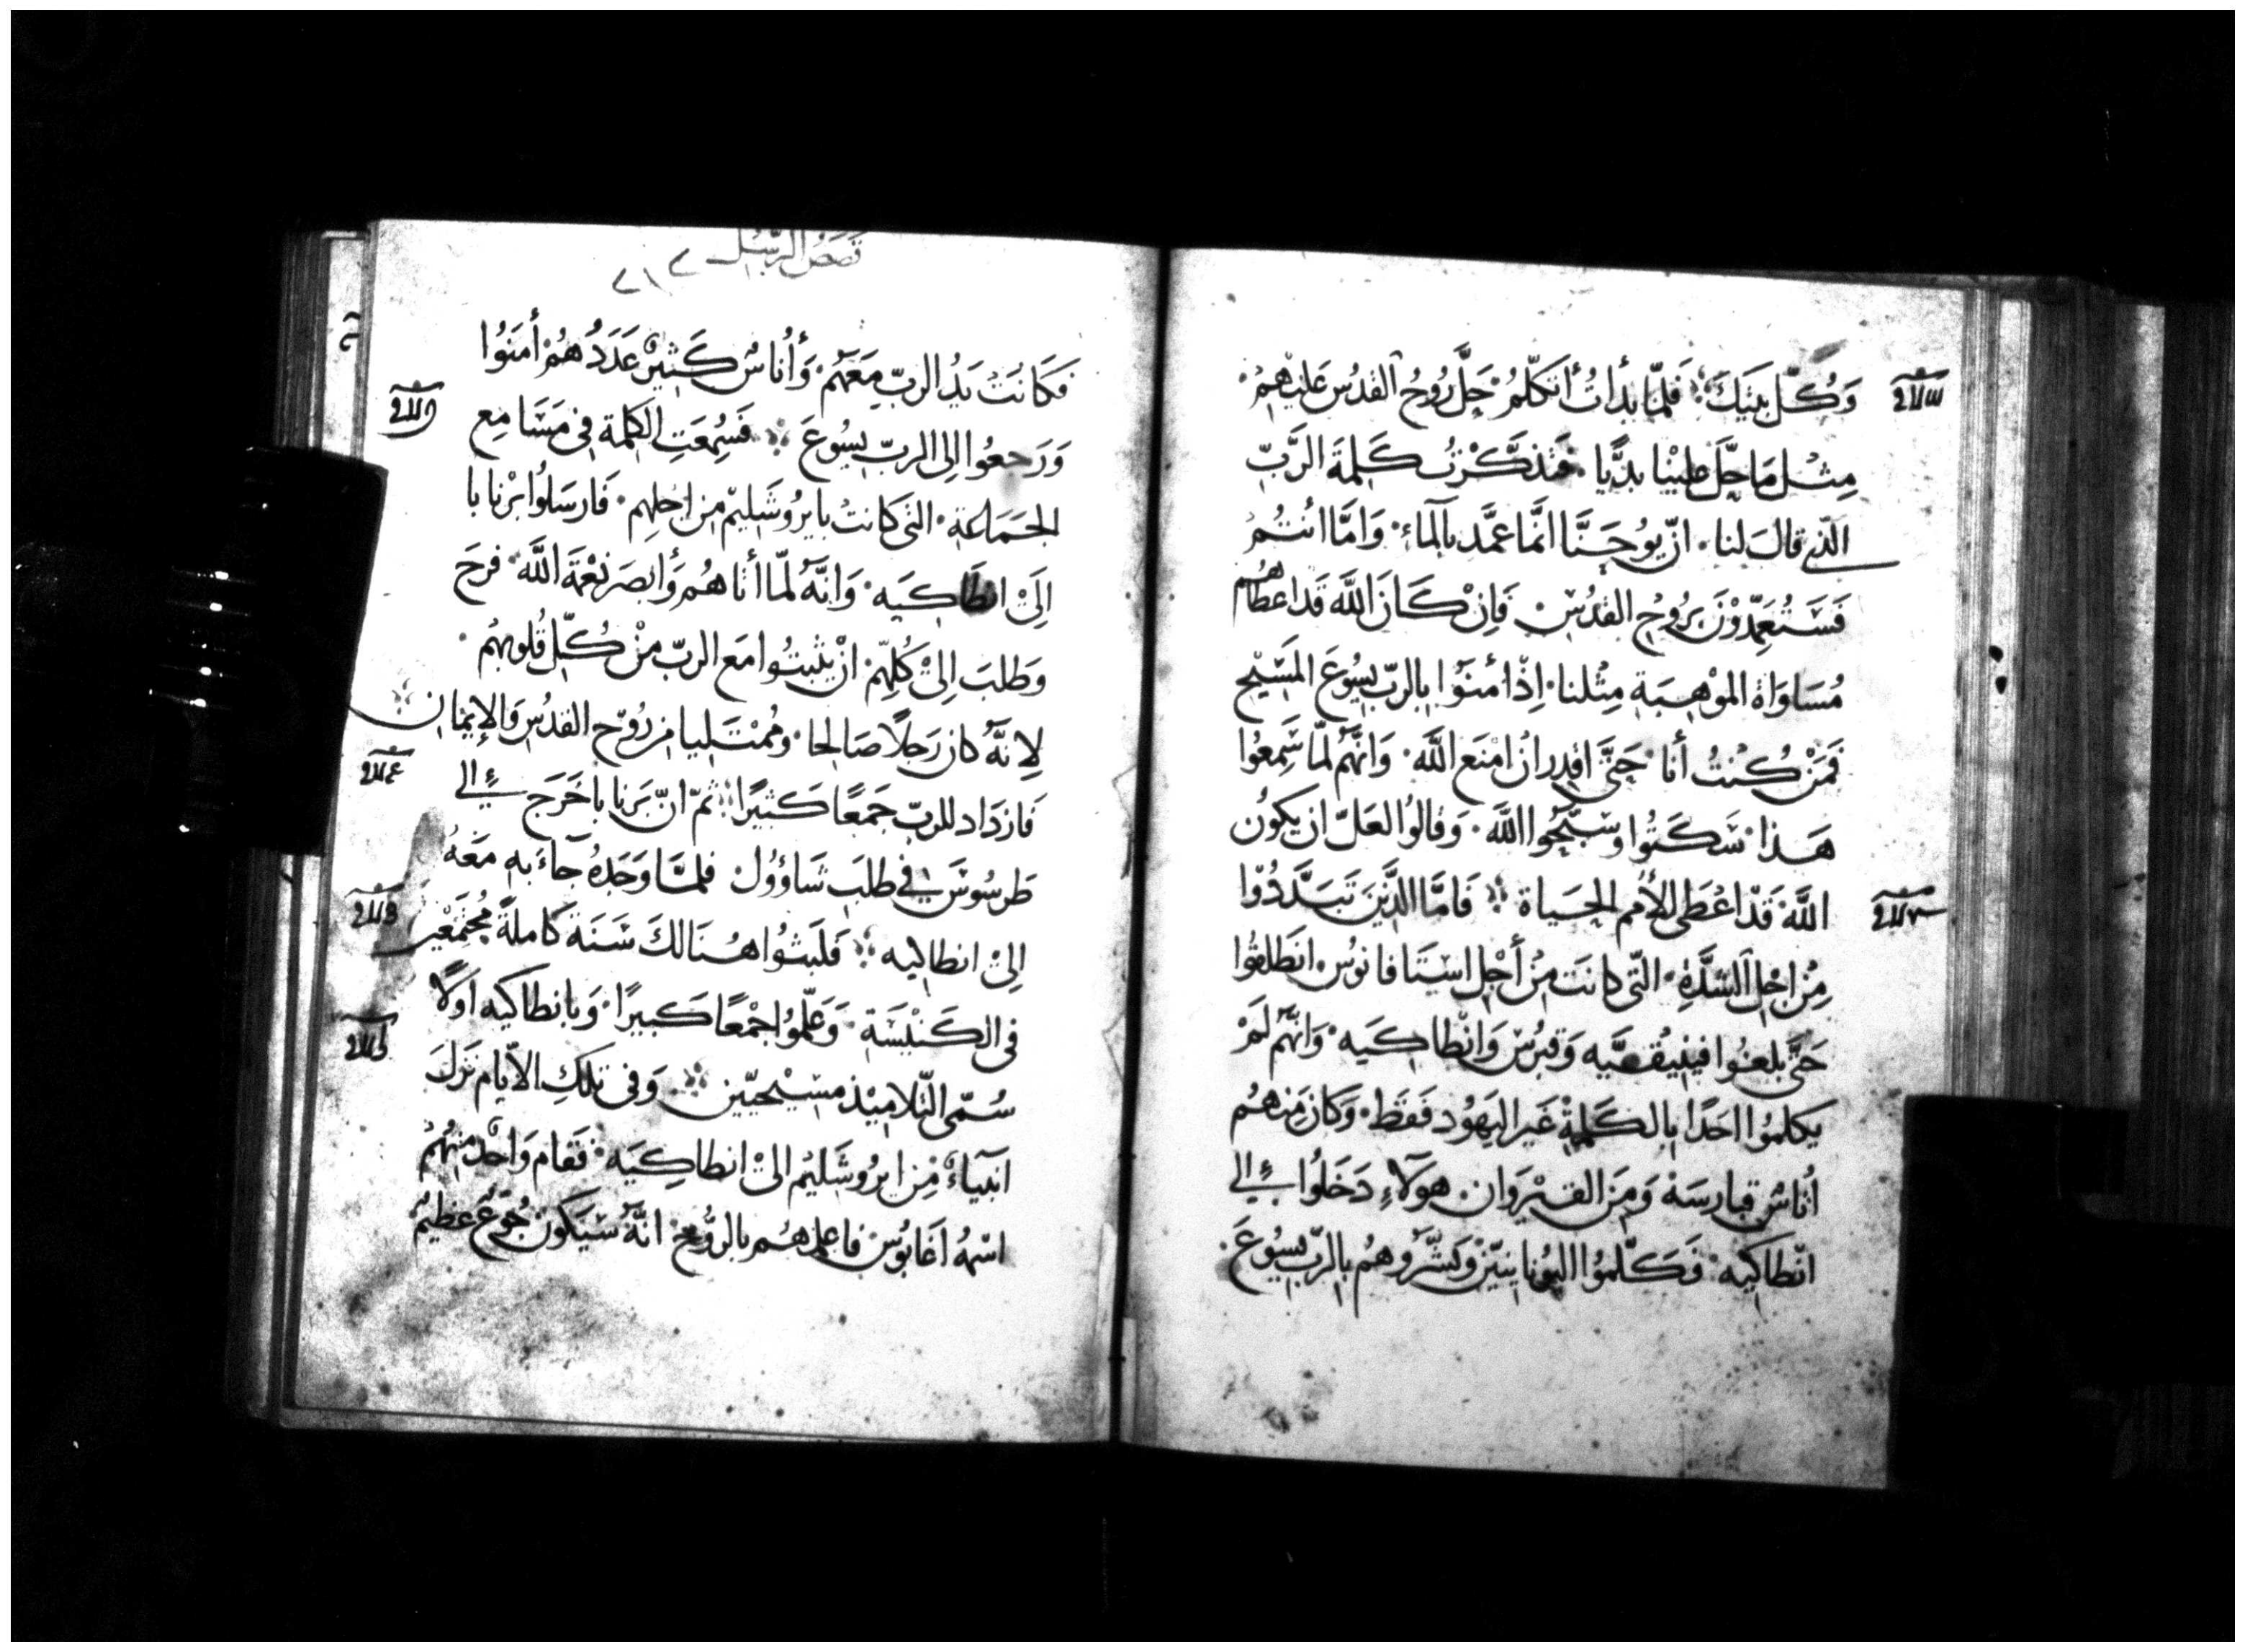 وَكُلّ بيتِكَ فَلمّا بدأتُ أتكلّمُ حَلَّ رُوحُ القدُس عَليهِمُ
مِثل مَا حَلَّ عَليْنا بديًّا فتذكّرْتُ كَلِمَةَ الرَّبّ
الّذي قالَ لنا انّ يُوحَنَّا انَّما عَمَّد بالماء وَامَّا انتُمُ
فَسَتُعَمِّدُوْنَ برُوُحِ القدُسِ فَانْ كَانَ اللَّه قَد اعطاهُم
مُسَاوَاة الموْهِبَة مِثْلنا اِذْ أمنَوا بالربّ يسُوعَ المَسِيْح
فَمَنْ كُنتُ أنا حَتَّى اقدِر انْ امْنَع اللَّه وَانّهُم لمّا سَمِعُوا
هَذا سَكَتُوا وسَبّحُوا اللَّه وَقالوُا لعَلّ ان يَكوُن
اللَّه قَدْ اعْطى للأمم الحَيَاة فَامَّا الذَّيِنَ تَبَدَّدُوْا
مِنْ اجْل الشدَّةِ الّتى كانَت مِنْ أجْل استَافانوُس انطَلقوُا
حَتَّى بلغوُا فينيقصَّيه وَقبرُسْ وَانْطاكيَه وَانّهُم لَمْ
يكلموُا احَدًا بالكَلِمةْ غَير اليَهُود فَقَط وَكانَ مِنهمُ
أناسْ قبارسَة وَمِنَ القيْرَوان هوَلآءِ دَخَلُوا الي
انْطاكيه فَكَلّموُا اليُونانييّنْ وَبَشَّرُوهُم بالرّبّ يسُوعَ
قصَصُ الرّسُل
فكَانَتْ يَدُ الربّ مَعَهُم وَأُناسُ كَثِيْر عَدَدُهُمْ أمَنُوا
وَرَجعُوا الى الربّ يسُوعَ فَسُمِعَتِ الكلمة فى مَسَامِع
الجَمَاعَة التى كانتْ بايرُوشَليْم من اجْلهِم فَارسَلوُا برْنابا
اِلَىْ انطَاكيَه وَانّهُ لمّا أتاهُم وَأبصَر نِعْمَةَ اللَّه فرَحَ
وَطلبَ اِلىْ كُلّهِم انْ يثبتُوا مَع الربّ مِنْ كُلّ قُلوبهُم
لِانّهُ كان رَجلًا صَالحا ومُمْتَليا من رُوْح القدُس وَالإيمَان
فَازدَاد للربّ جَمعًا كَثيرًا ثمّ انّ بَرنابا خَرَج الي
طَرسُوسَ في طلَب شَاؤوُل فلمَّا وَجَدهُ جآءَ به مَعَهُ
الىْ انطاكيه فَلَبثُوا هُنالكَ سَنَة كاملةً مُجْتَمِعْين
فى الكَنيْسَة وَعَلّموُا جَمْعًا كَبيرًا وَبانطاكيه اولًا
سُمّى التّلاميْذ مسْيحيّين وَفى تلكَ الأيام نزلَ
انبَيَاءْ مِنْ ايرُوشَليْم الىْ انطاكِيَه فقام وَاحدْ منهُمُ
اسْمُهُ اغَابوُس فاعلمهُم بالرُّوحْ انّهُ سَيَكون جُوعْ عَظيْمُ